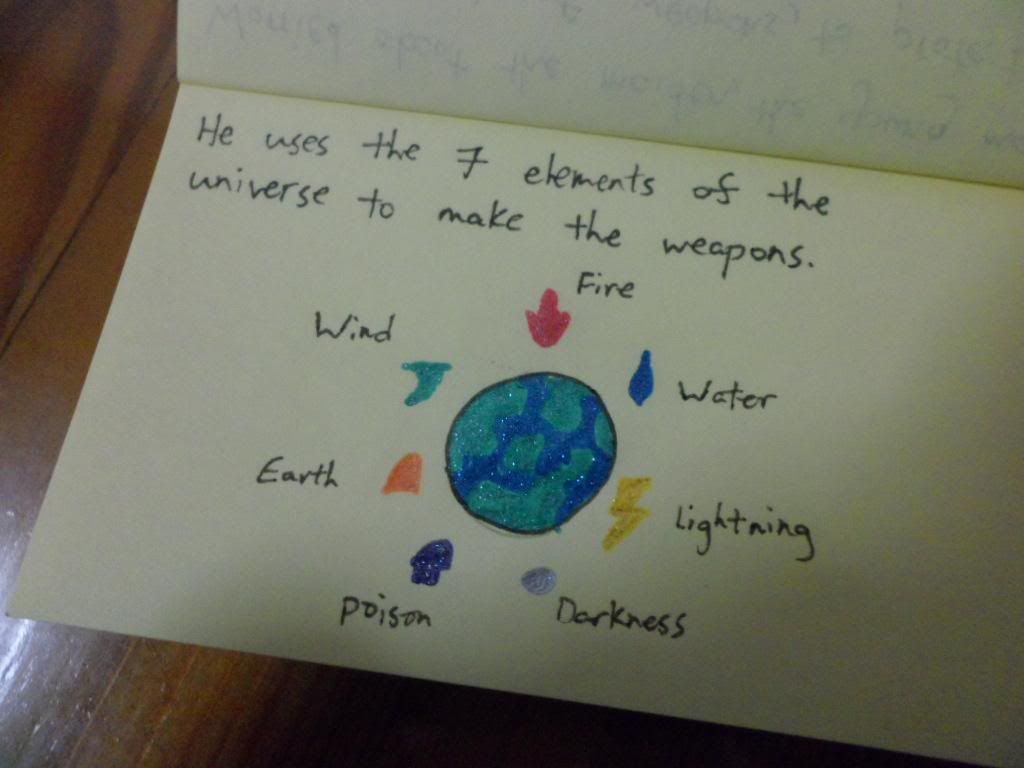 He uses the 7 elements of the
universe to make the weapons.
Fire
Wind
Water
Earth
Lightning
Poison
Darkness